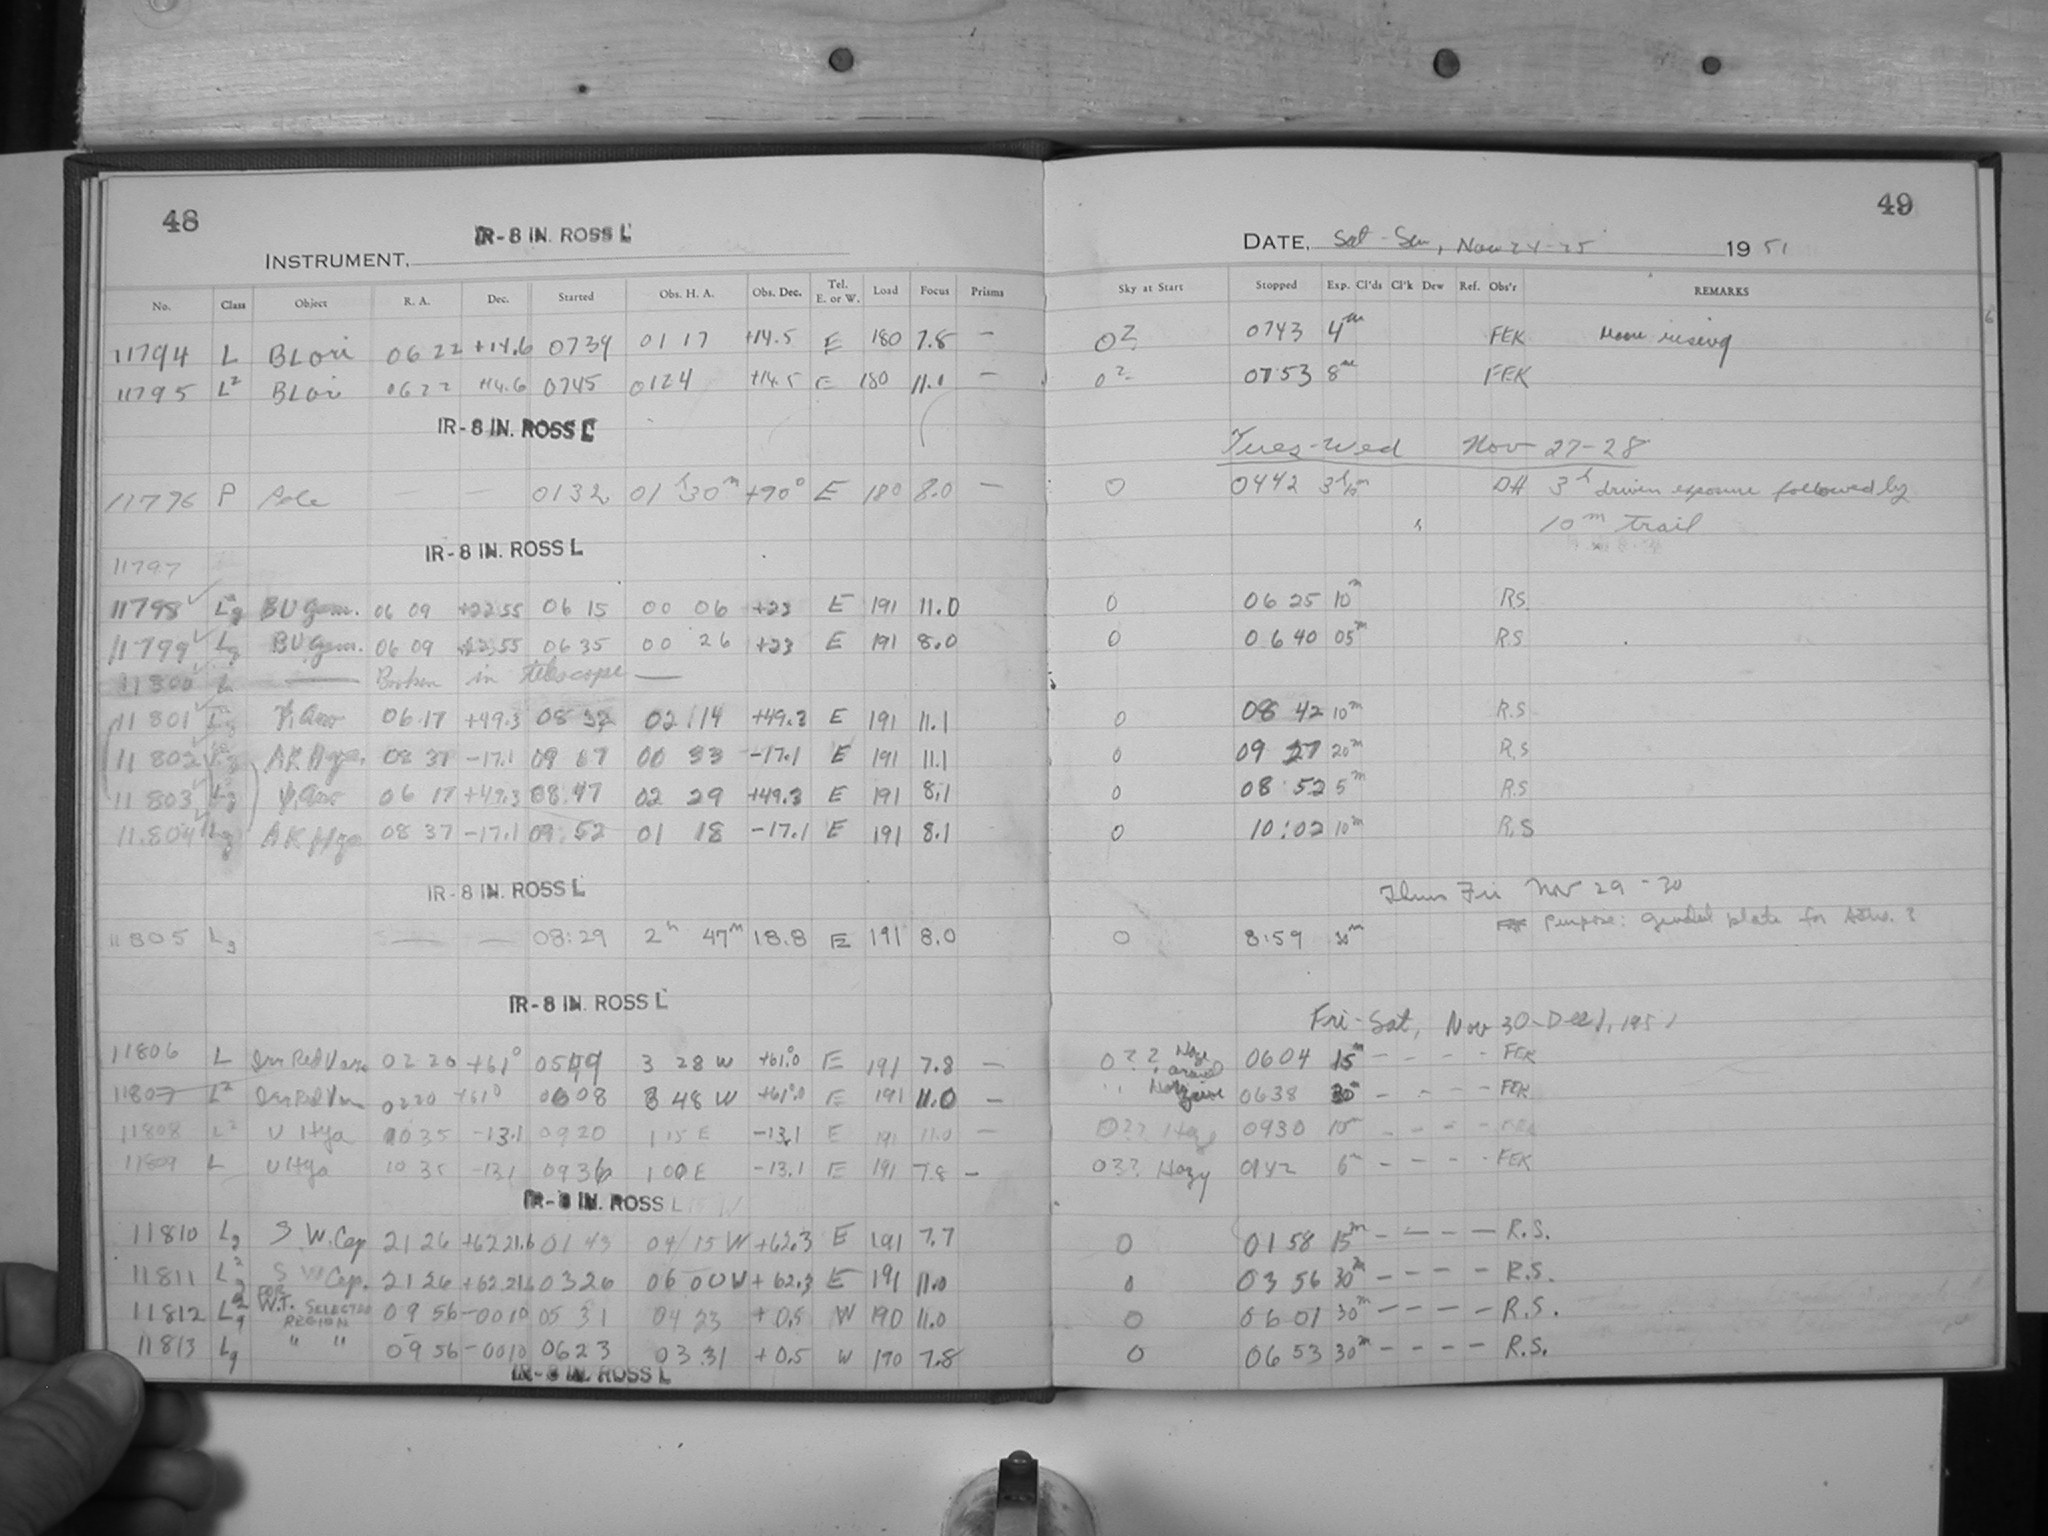 48
IR-8 IN. ROSS L
INSTRUMENT,
No. Class Object R. A. Dec. Started Obs. H. A. Obs. Dec. Tel. E. or W. Load Focus Prisms
11794 L BL Ori 06 22 +14.6 0739 01 17 +14.5 E 180 7.8 —
11795 L² BL Ori 06 22 +14.6 0745 0124 +14.5 E 180 11.1 —
IR-8 IN. ROSS L
11796 P Pole — — 0132 01ʰ30ᵐ +90° E 180 8.0 —
IR-8 IN. ROSS L
11797
11798 L²g BU Gem. 06 09 +22 55 06 15 00 06 +23 E 191 11.0
11799 Lg BU Gem. 06 09 +22 55 06 35 00 26 +23 E 191 8.0
11800 L — Broken in telescope —
11801 L²g ψ, Aur 06 17 +49.3 08 32 02 14 +49.3 E 191 11.1
11802 L²g AK Hya. 08 37 -17.1 09 07 00 33 -17.1 E 191 11.1
11803 Lg ψ, Aur 06 17 +49.3 08:47 02 29 +49.3 E 191 8.1
11.804 Lg AK Hya 08 37 -17.1 09:52 01 18 -17.1 E 191 8.1
IR-8 IN. ROSS L
11805 Lg — — 08:29 2ʰ 47ᵐ 18.8 E 191 8.0
IR-8 IN. ROSS L
11806 L 02 20 +61° 0549 3 28 W +61.0 E 191 7.8 —
11807 L² 0220 +61° 0608 3 48 W +61.0 E 191 11.0 —
11808 L² U Hya 10 35 -13.1 0920 1 15 E -13.1 E 191 11.0 —
11809 L U Hya 10 35 -13.1 0936 1 00 E -13.1 E 191 7.8 —
IR-8 IN. ROSS L
11810 Lg S W. Cep 21 26 +62 21.6 01 43 04 15 W +62.3 E 191 7.7
11811 L²g S W Cep. 21 26 +62.21.6 03 26 06 00 W +62.3 E 191 11.0
11812 L²g FOR W.T. SELECTED REGION 09 56 -00 10 05 31 04 23 +0.5 W 190 11.0
11813 Lg " " 09 56 -00 10 0623 03 31 +0.5 W 190 7.8
IR-8 IN. ROSS L
49
DATE, Sat-Sun, Nov 24-25 1951
Sky at Start Stopped Exp. Cl'ds Cl'k Dew Ref. Obs'r REMARKS
0? 0743 4ᵐ FEK Moon rising
0? 0753 8ᵐ FEK
Tues-Wed Nov 27-28
0 0442 3ʰ10ᵐ DH 3ʰ driven exposure followed by
10ᵐ trail
0 06 25 10ᵐ RS
0 06 40 05ᵐ R.S
0 08 42 10ᵐ R.S
0 09 27 20ᵐ R.S
0 08:52 5ᵐ R.S
0 10:02 10ᵐ R.S
Thurs Fri Nov 29-30
Purpose: plate for
0 8:59 30ᵐ
Fri-Sat, Nov 30-Dec 1, 1951
0?? Haze 0604 15ᵐ — — — — FEK
" 0638 30ᵐ — — — — FEK
0?? Haze 0930 10ᵐ — — — — FEK
0?? Hazy 0942 6ᵐ — — — — FEK
0 01 58 15ᵐ — — — — R.S.
0 03 56 30ᵐ — — — — R.S.
0 06 01 30ᵐ — — — — R.S.
0 06 53 30ᵐ — — — — R.S.